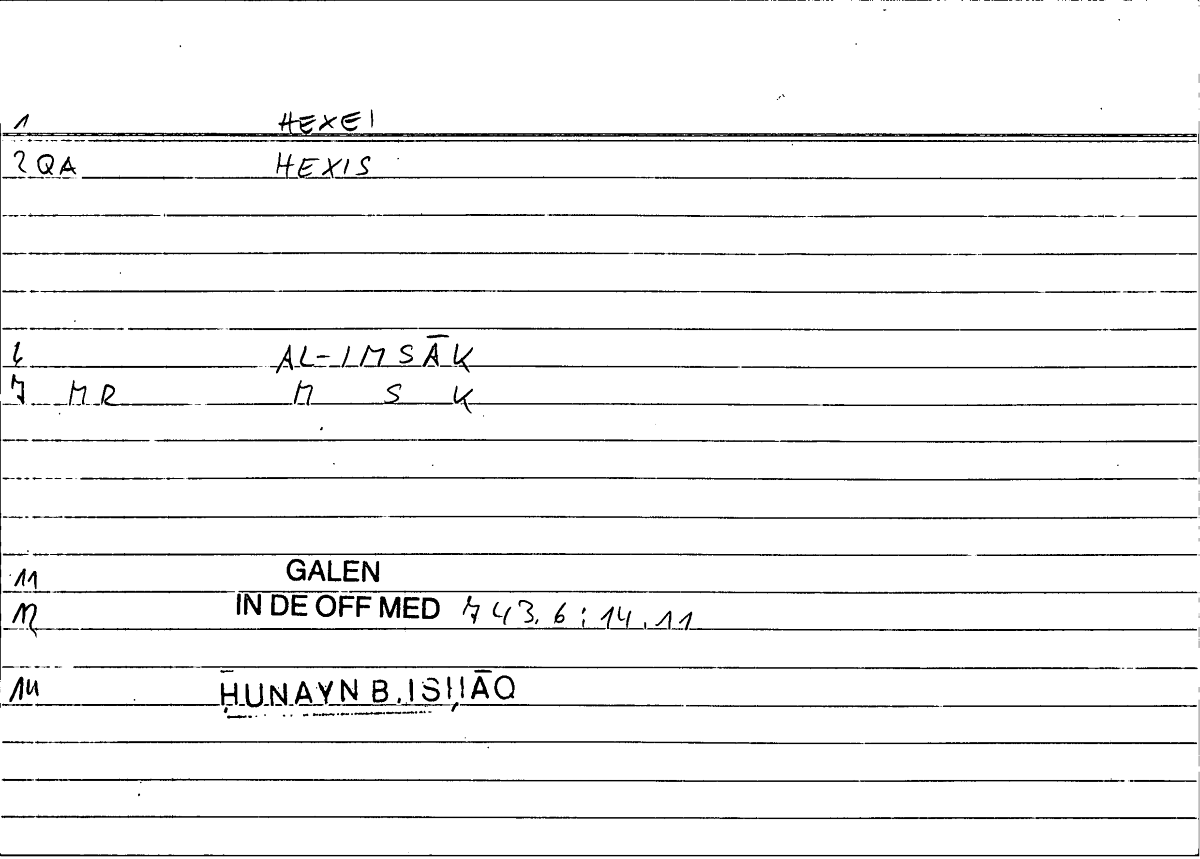 1 HEXEI
2 QA HEXIS
6 AL-IMSĀK
7 MR M S K
11 GALEN
12 IN DE OFF MED 743.6 : 14.11
14 ḤUNAYN B. ISḤĀQ